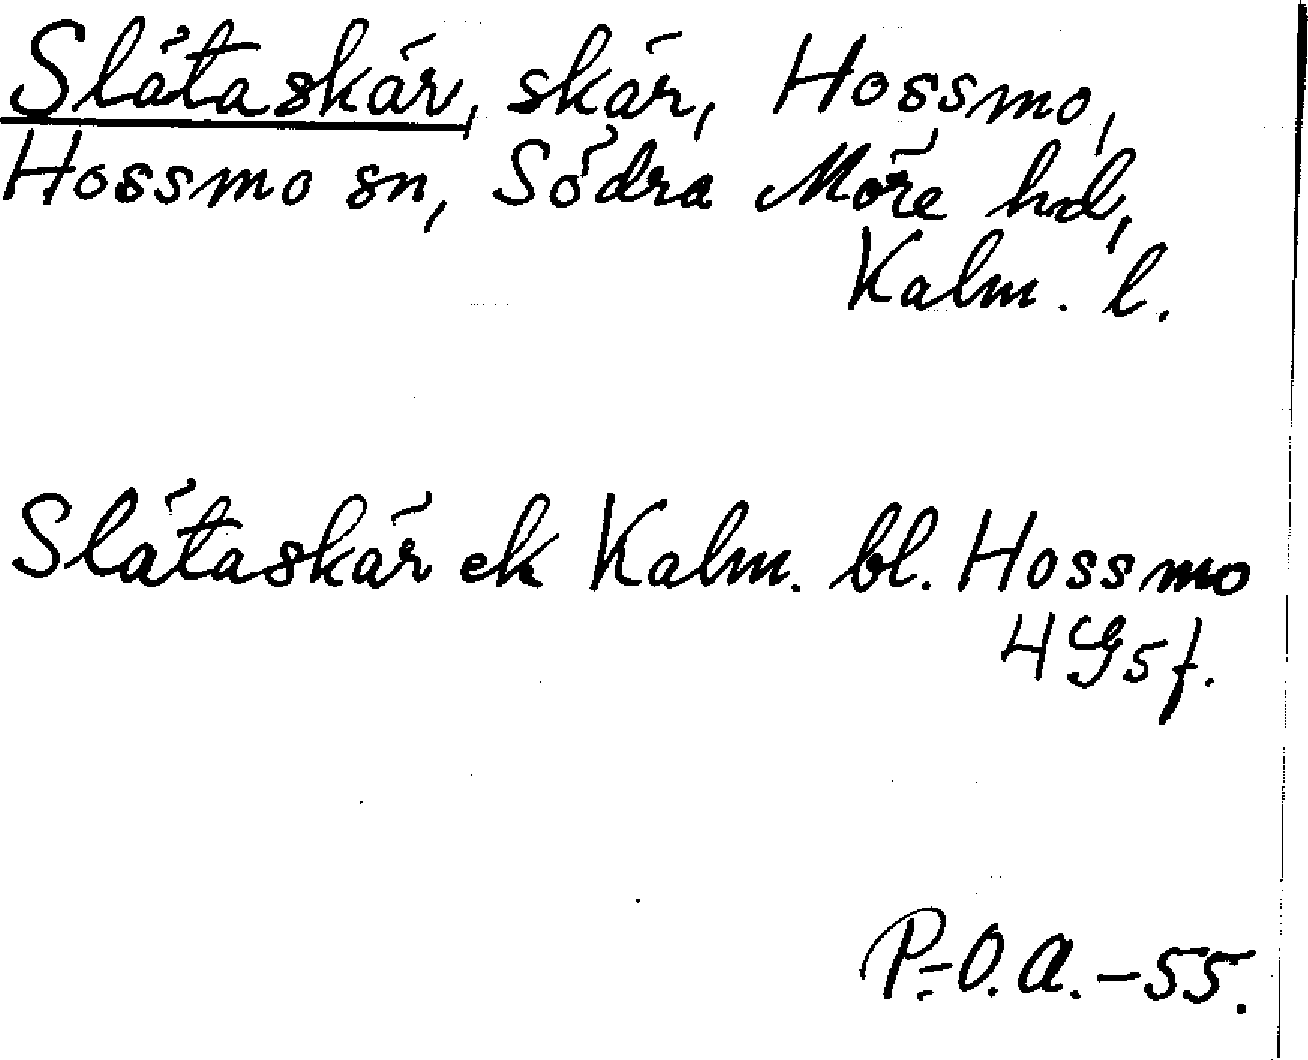 Slätaskär, skär, Hossmo,
Hossmo sn, Södra Möre hd,
Kalm. l.
Slätaskär ek Kalm. bl. Hossmo
4G5f.
P.-O.A.-55.